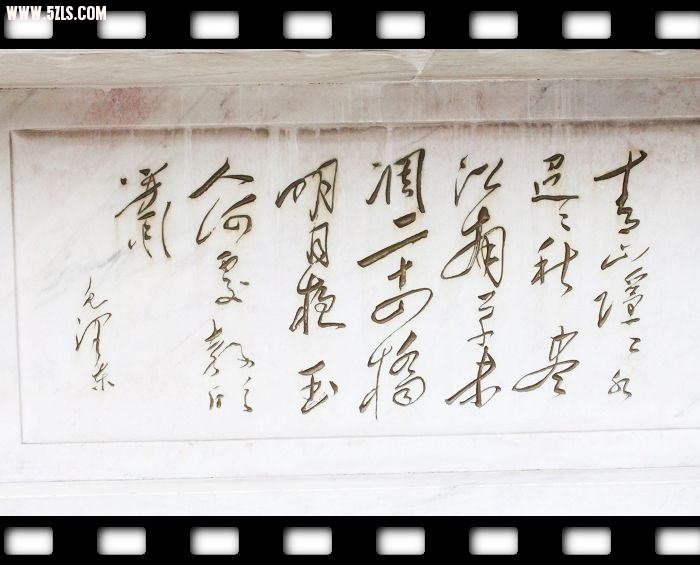 WWW.5ZLS.COM
青山隱〻水
迢〻秋尽
江南草未
凋二十四橋
明月夜玉
人何處教吹
簫
毛澤东